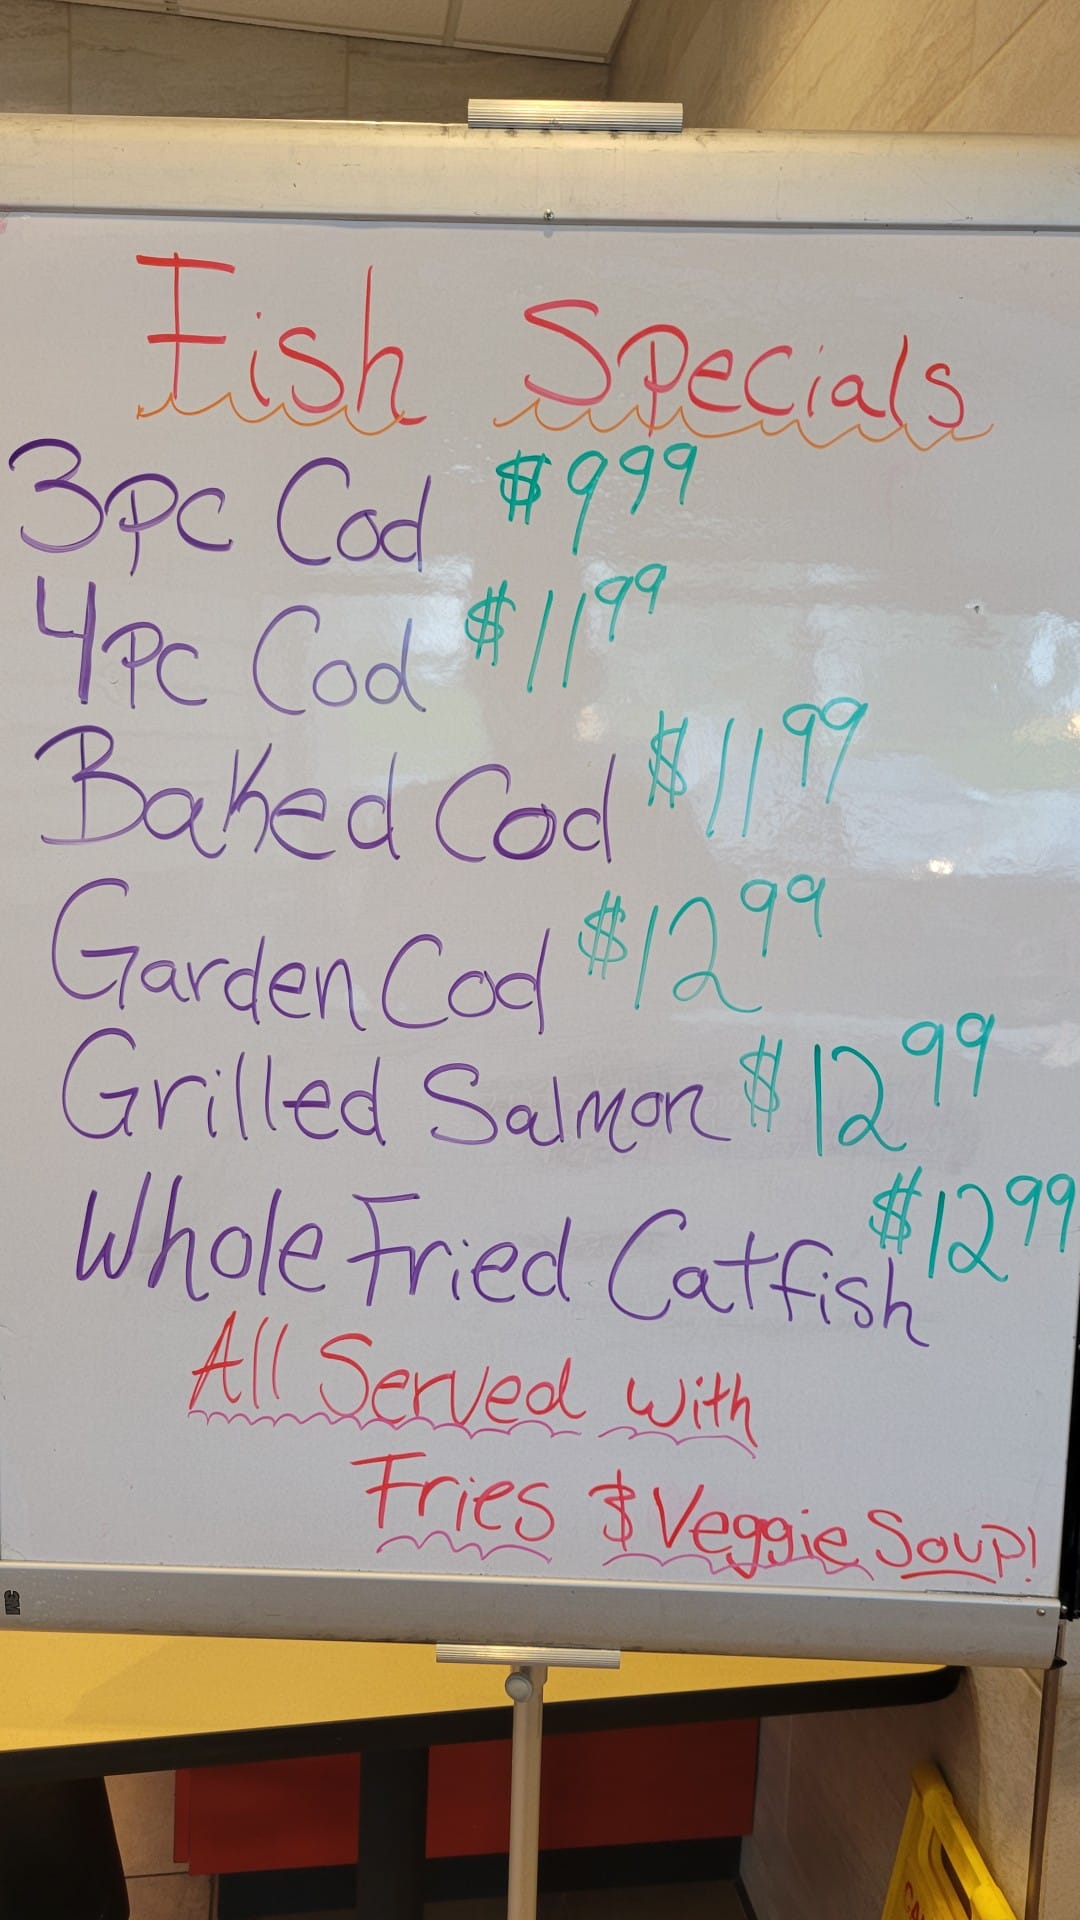 Fish Specials
3pc Cod $9.99
4pc Cod $11.99
Baked Cod $11.99
Garden Cod $12.99
Grilled Salmon $12.99
Whole Fried Catfish $12.99
All Served with
Fries & Veggie Soup!
3M
CA